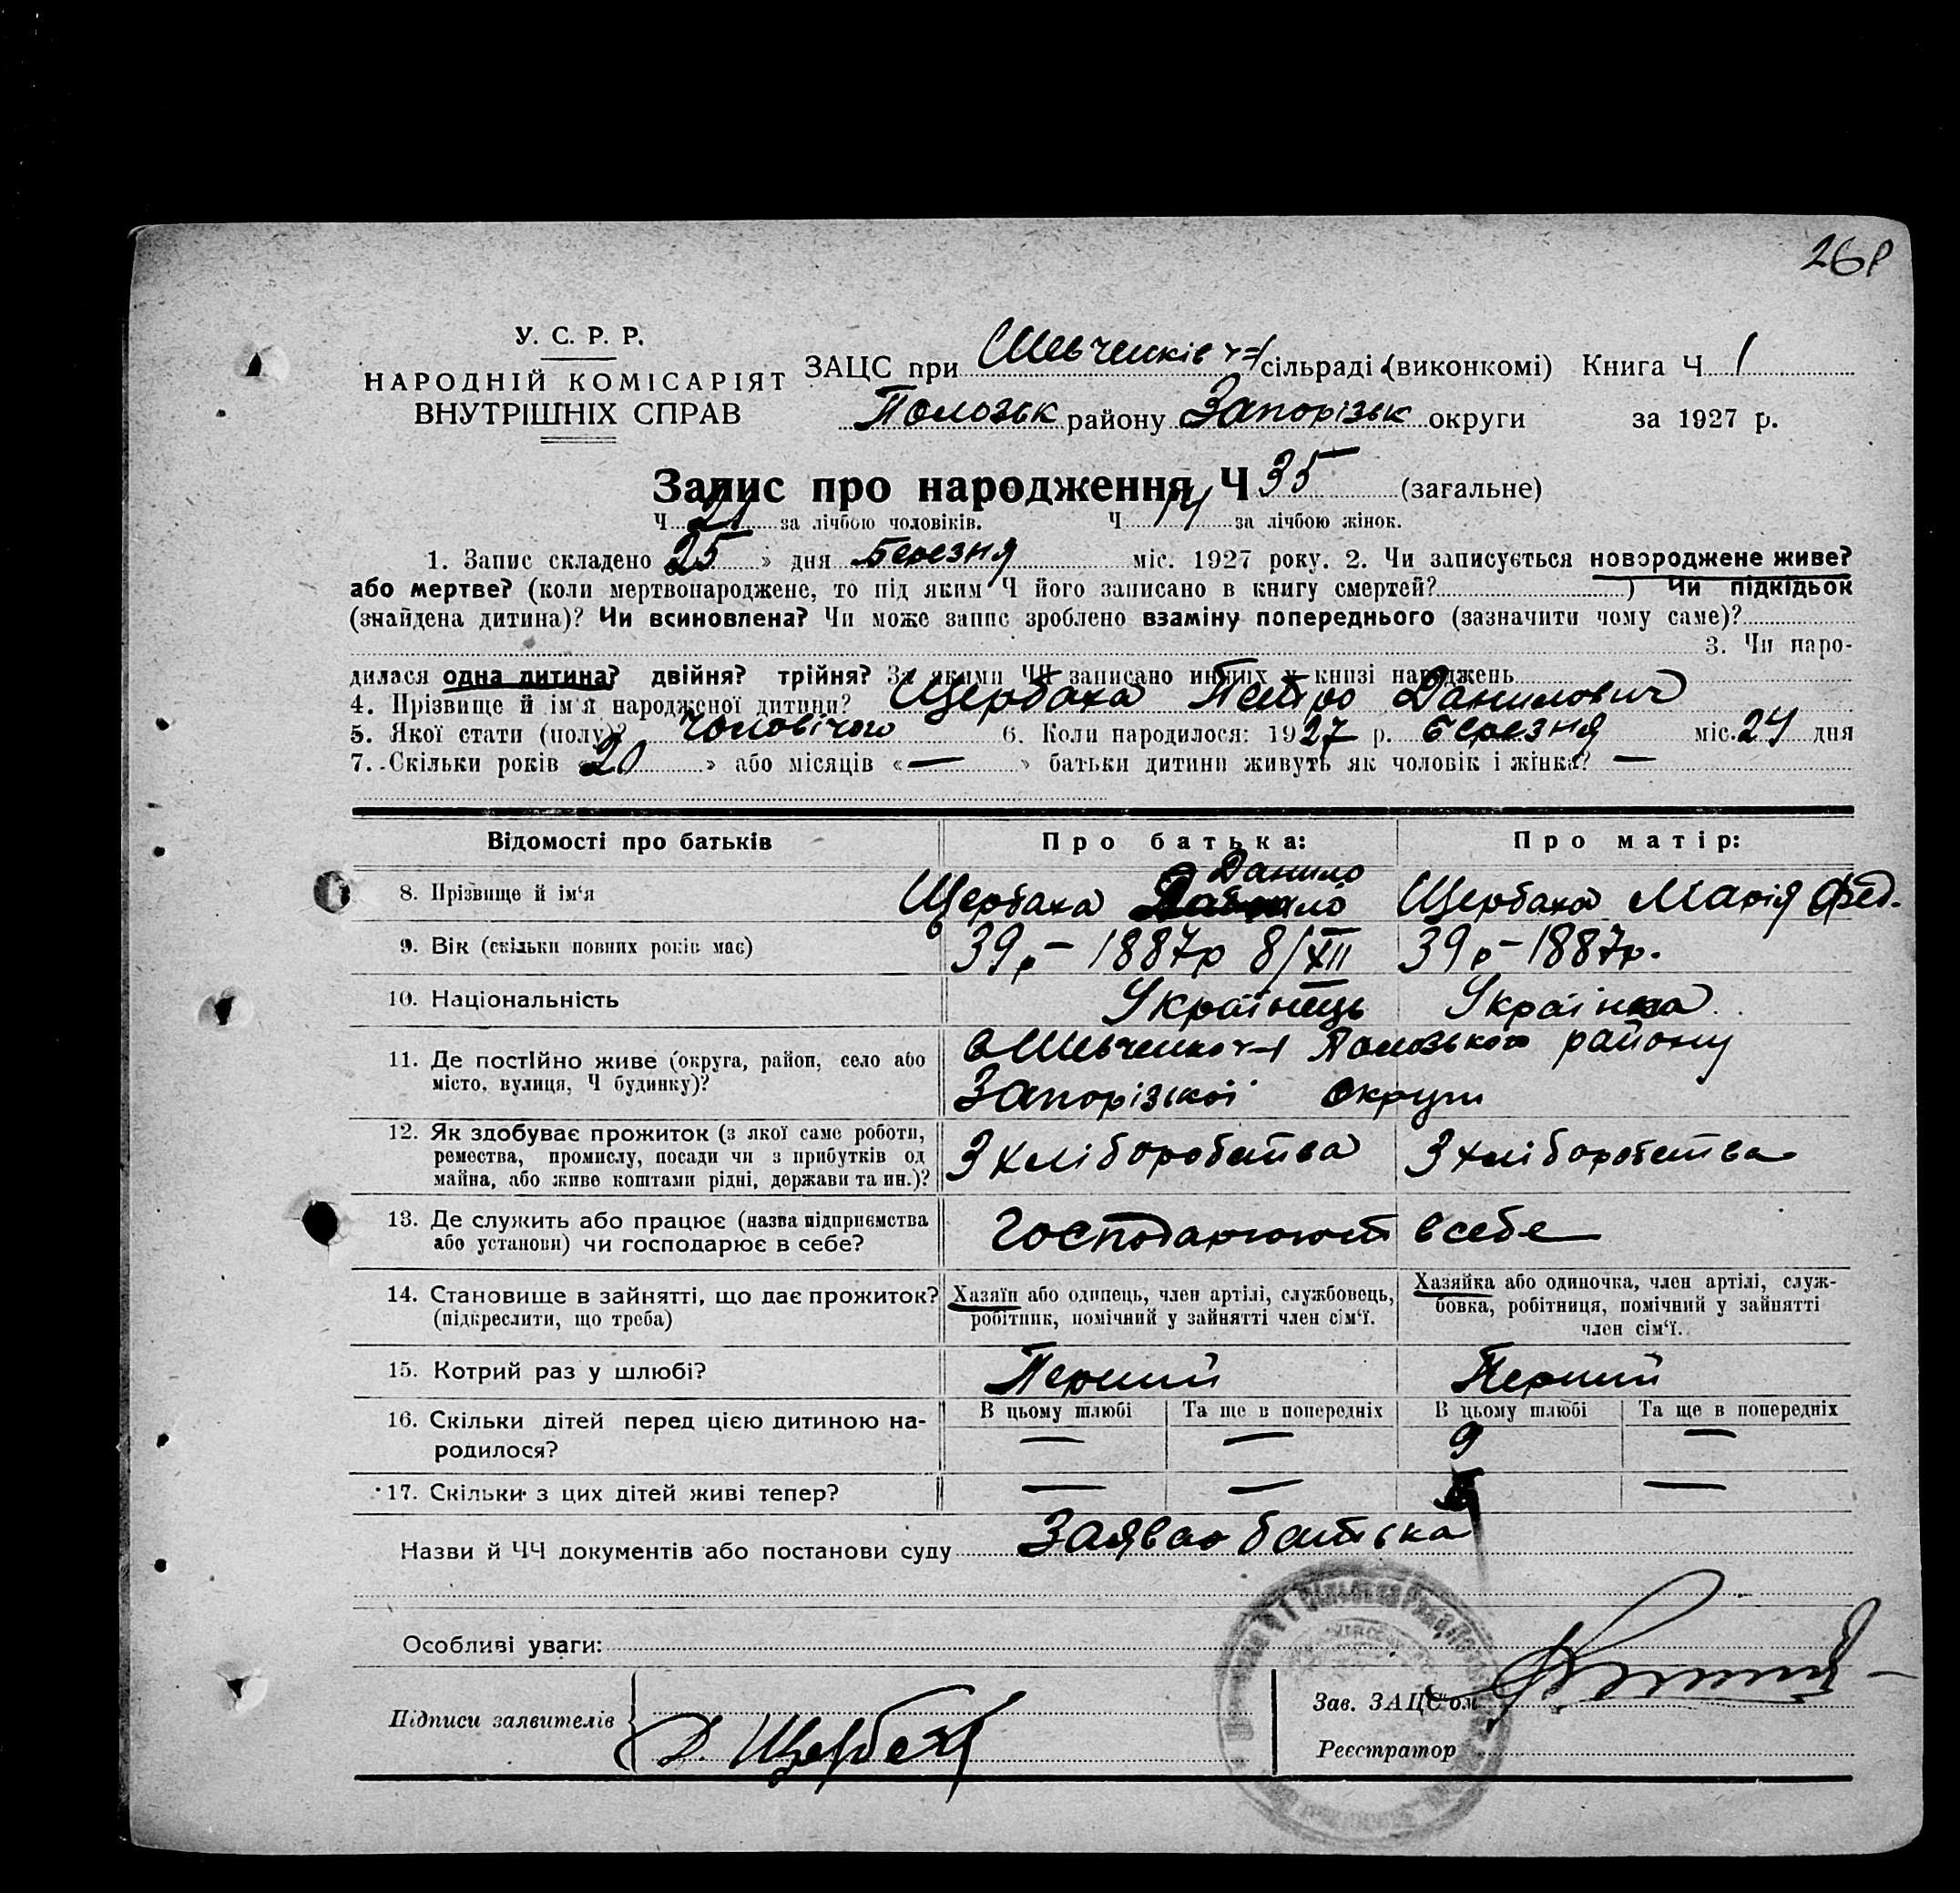 268
У. С. Р. Р.
НАРОДНІЙ КОМІСАРІЯТ
ВНУТРІШНІХ СПРАВ
ЗАЦС при Шевченків сільраді (виконкомі) Книга Ч 1
Полозьк району Запорізьк округи за 1927 р.
Запис про народження Ч 35 (загальне)
Ч 21 за лічбою чоловіків. Ч 14 за лічбою жінок.
1. Запис складено 25 » дня Березня міс. 1927 року. 2. Чи записується новороджене живе?
або мертве? (коли мертвонароджене, то під яким Ч його записано в книгу смертей? ) Чи підкідьок
(знайдена дитина)? Чи всиновлена? Чи може запис зроблено взаміну попереднього (зазначити чому саме)?
3. Чи наро-
дилася одна дитина? двійня? трійня? За якими ЧЧ записано инших у книзі народжень
4. Прізвище й ім'я народженої дитини? Щербаха Петро Данилович
5. Якої стати (полу)? Чоловічого 6. Коли народилося: 1927 р. Березня міс. 24 дня
7. Скільки років « 20 » або місяців « — » батьки дитини живуть як чоловік і жінка? —
Відомості про батьків Про батька: Про матір:
Данило
8. Прізвище й ім'я Щербаха Щербаха Марія Фед.
9. Вік (скільки повних років має) 39 р – 1887р 8/XII 39 р – 1887р.
10. Національність Українець Українка
11. Де постійно живе (округа, район, село або
місто, вулиця, Ч будинку)?
Полозького району
Запорізької округи
12. Як здобуває прожиток (з якої саме роботи,
ремества, промислу, посади чи з прибутків од
майна, або живе коштами рідні, держави та ин.)?
З хліборобства З хліборобства
13. Де служить або працює (назва підприємства
або установи) чи господарює в себе?
Господарюють в себе
14. Становище в зайнятті, що дає прожиток?
(підкреслити, що треба)
Хазяїн або одинець, член артілі, службовець,
робітник, помічний у зайнятті член сім'ї.
Хазяйка або одиночка, член артілі, служ-
бовка, робітниця, помічний у зайнятті
член сім'ї.
15. Котрий раз у шлюбі? Перший Перший
16. Скільки дітей перед цією дитиною на-
родилося?
В цьому шлюбі Та ще в попередніх В цьому шлюбі Та ще в попередніх
— — 9 —
17. Скільки з цих дітей живі тепер? — — —
Назви й ЧЧ документів або постанови суду Заява батька
Особливі уваги:
Підписи заявителів Д. Щербаха
Зав. ЗАЦС'ом
Реєстратор